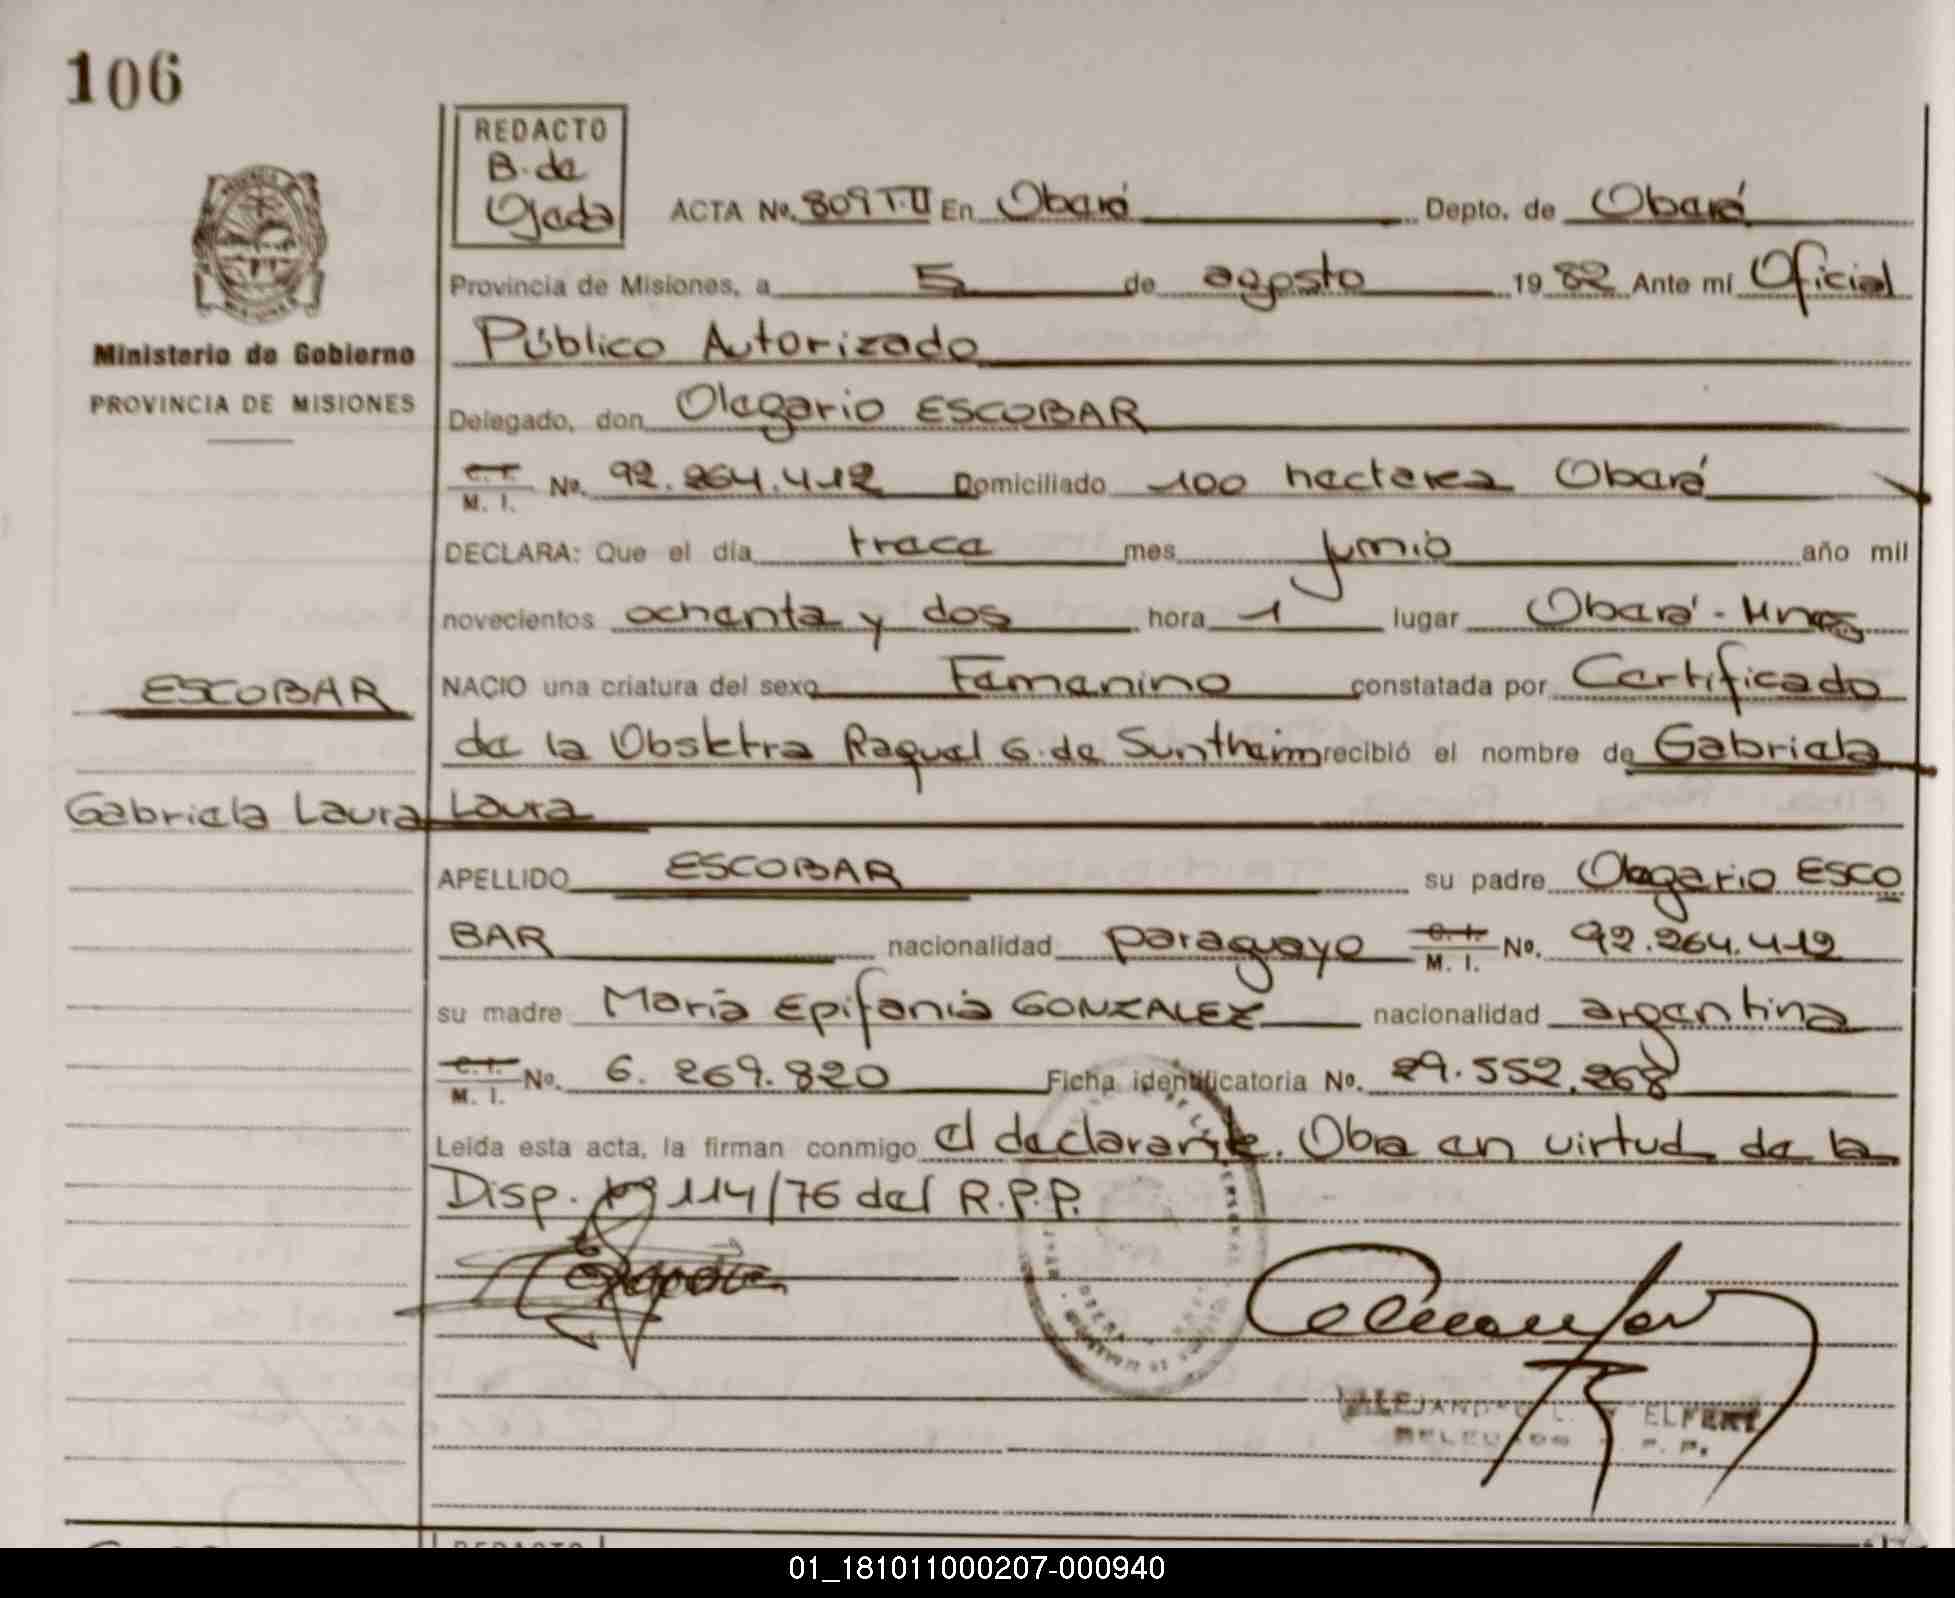 106
REDACTO
B. de
Ojeda
ACTA No. 809 T.II En Oberá Depto. de Oberá
Provincia de Misiones, a 5 de agosto 1982 Ante mí Oficial
Público Autorizado
Ministerio de Gobierno
PROVINCIA DE MISIONES
Delegado, don Olegario ESCOBAR
C. I. M. I. No. 92.264.412 Domiciliado 100 hectarea Oberá
DECLARA: Que el día trece mes junio año mil
novecientos ochenta y dos hora 1 lugar Oberá - Mnes
ESCOBAR
NACIO una criatura del sexo Femenino constatada por Certificado
de la Obstetra Raquel G. de Suntheim recibió el nombre de Gabriela
Gabriela Laura
Laura
APELLIDO ESCOBAR su padre Olegario ESCO
BAR nacionalidad paraguayo C. I. M. I. No. 92.264.412
su madre María Epifania GONZALEZ nacionalidad argentina
C. I. M. I. No. 6.269.820 Ficha identificatoria No. 29.552.268
Leída esta acta, la firman conmigo el declarante. Obra en virtud de la
Disp. Nº 114/76 del R.P.P.
REDACTO
01_181011000207-000940